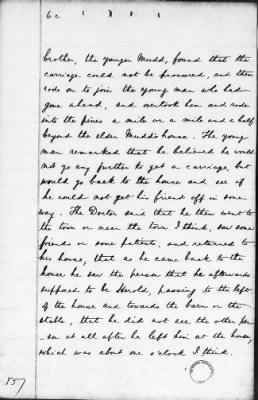 6c
brother, the younger Mudd, found that the
carriage could not be procured, and then
rode on to join the young man who had
gone ahead, and overtook him and rode
into the pines a mile or a mile and a half
beyond the elder Mudd's house. The young
man remarked that he believed he would
not go any further to get a carriage, but
would go back to the house and see if
he could not get his friend off in some
way. The Doctor said that he then went to
the town or near the town I think, saw some
friends or some patients, and returned to
his house, that as he came back to the
house he saw the person that he afterwards
supposed to be Herold, passing to the left
of the house and towards the barn or the
stable, that he did not see the other per
-son at all after he left him at the house,
which was about one o'clock I think.